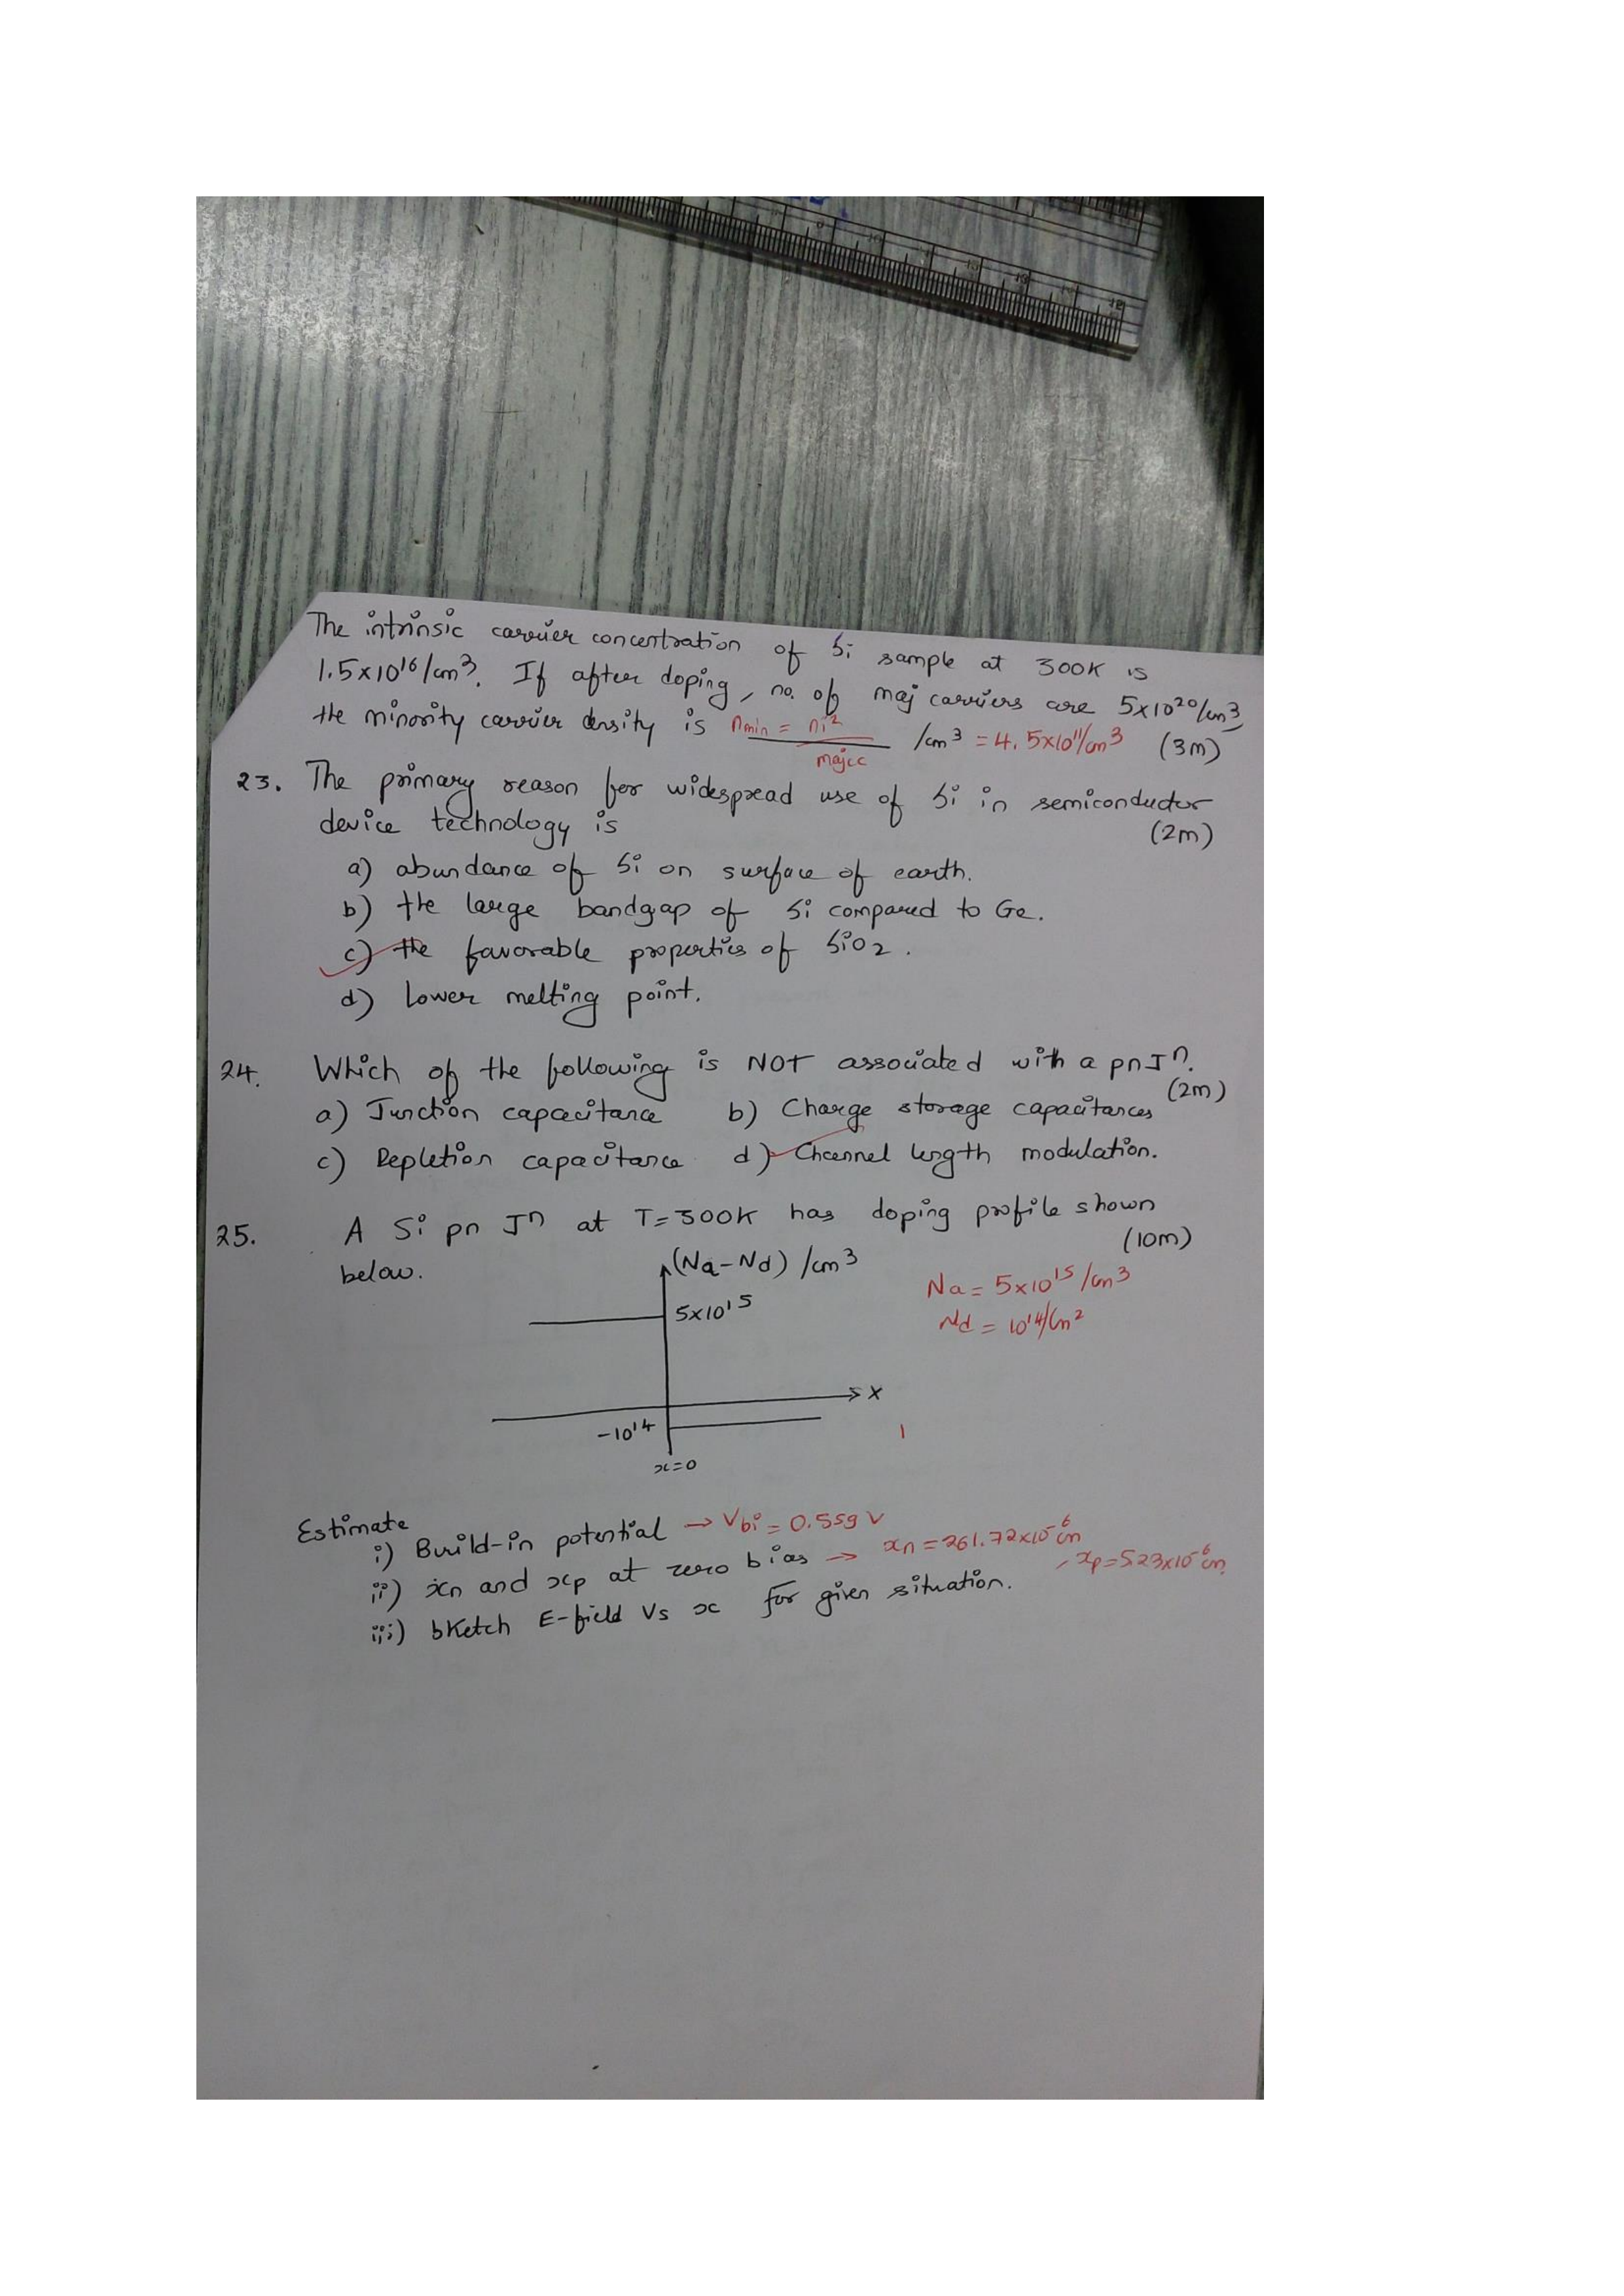 The intrinsic carrier concentration of Si sample at 300K is
1.5x10¹⁶/cm³. If after doping, no. of maj carriers are 5x10²⁰/cm³,
the minority carrier density is nmin = ni² / majcc /cm³ = 4.5x10¹¹/cm³ (3m)
23. The primary reason for widespread use of Si in semiconductor
device technology is (2m)
a) abundance of Si on surface of earth.
b) the large bandgap of Si compared to Ge.
c) the favorable properties of SiO2.
d) Lower melting point.
24. Which of the following is NOT associated with a pn Jⁿ.
(2m)
a) Junction capacitance b) Charge storage capacitances
c) Depletion capacitance d) Channel length modulation.
25. A Si pn Jⁿ at T=300K has doping profile shown
below. (10m)
(Na-Nd) /cm³
Na = 5x10¹⁵/cm³
5x10¹⁵
Nd = 10¹⁴/cm²
x
-10¹⁴
x=0
Estimate
i) Build-in potential → Vbi = 0.559 V
ii) xn and xp at zero bias → xn = 261.72x10⁻⁶cm, xp=523x10⁻⁶cm
iii) sketch E-field Vs x for given situation.